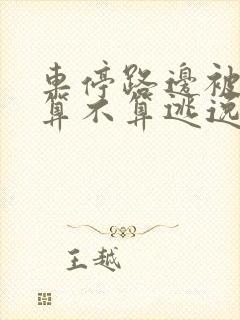 車停路邊被
算不算逃逸
王越